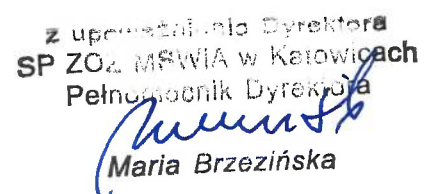 z upoważnienia Dyrektora
SP ZOZ MSWIA w Katowicach
Pełnomocnik Dyrektora
Maria Brzezińska